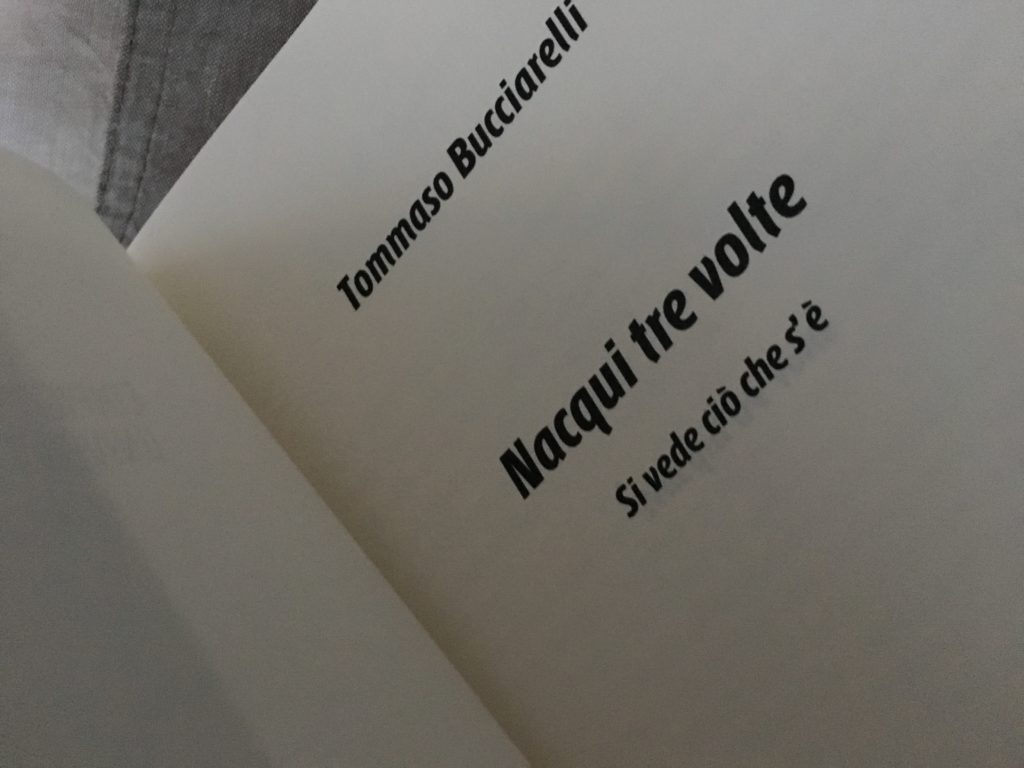 Tommaso Bucciarelli
Nacqui tre volte
Si vede ciò che s'è